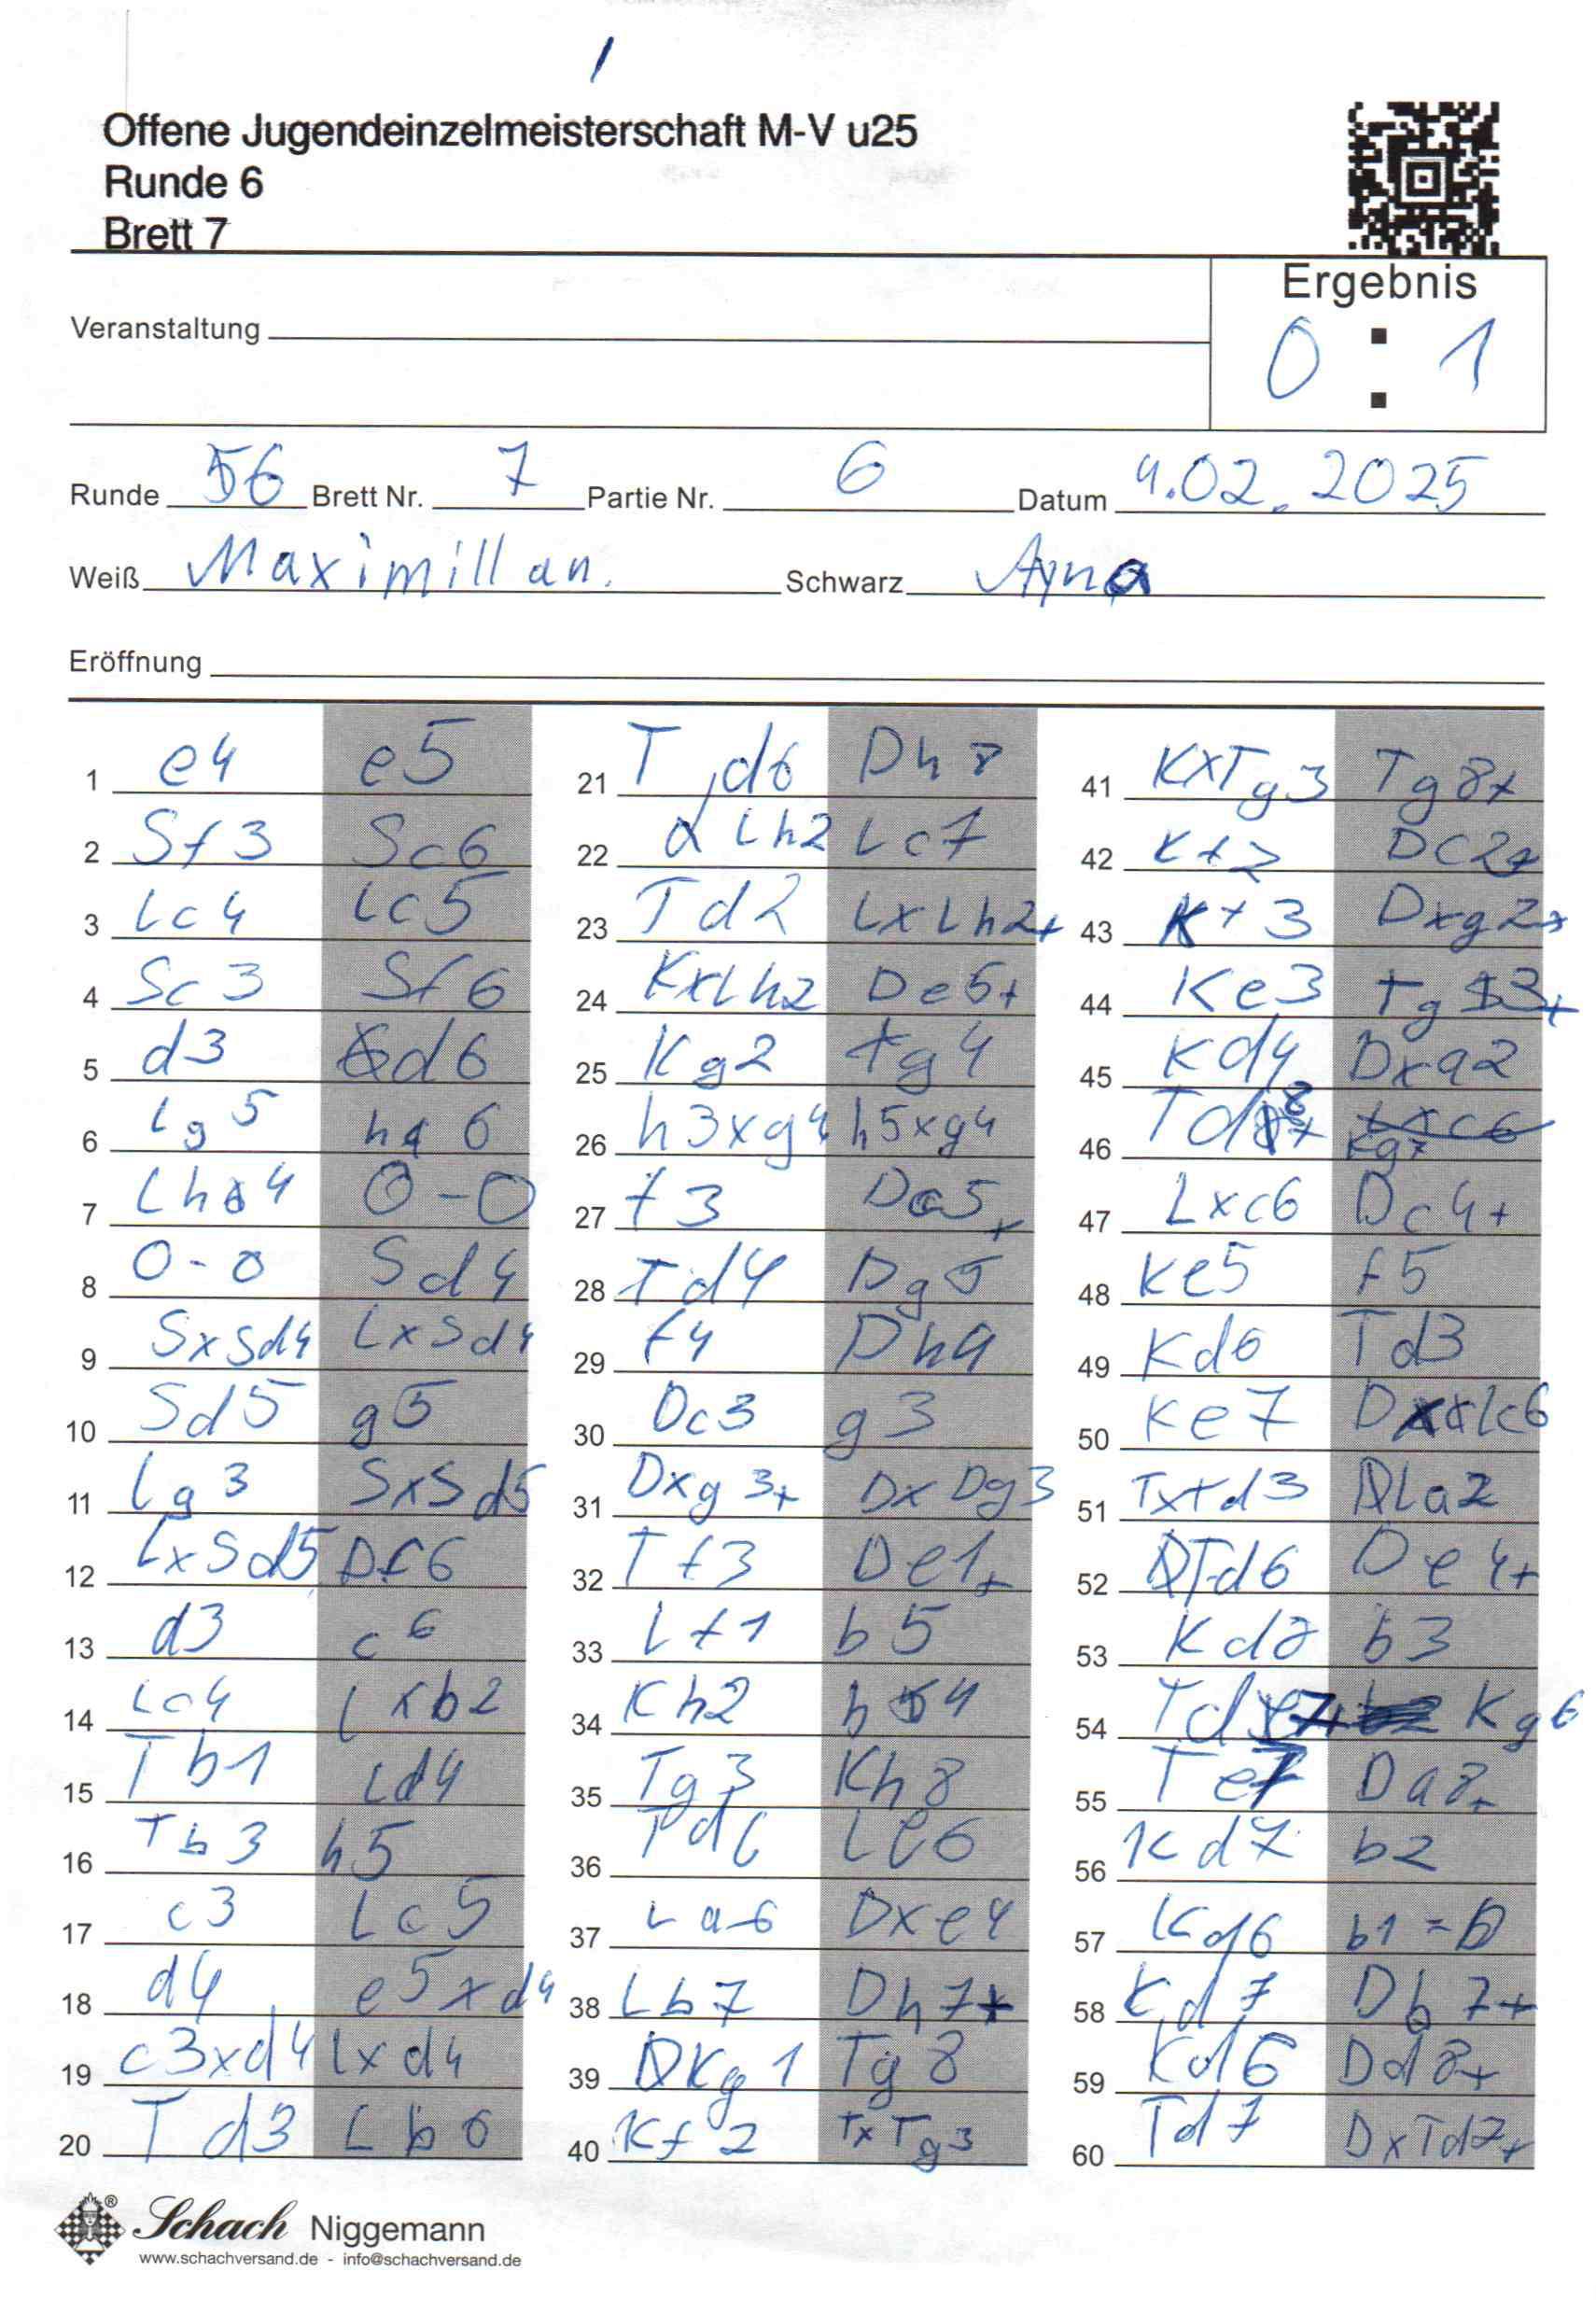 Offene Jugendeinzelmeisterschaft M-V u25
Runde 6
Brett 7
Ergebnis
0 : 1
Veranstaltung
Runde 56 Brett Nr. 7 Partie Nr. 6 Datum 4.02.2025
Weiß Maximillan. Schwarz Ayna
Eröffnung
1 e4 e5
2 Sf3 Sc6
3 Lc4 Lc5
4 Sc3 Sf6
5 d3 d6
6 Lg5 h6
7 Lh4 0-0
8 0-0 Sd4
9 SxSd4 LxSd4
10 Sd5 g5
11 Lg3 SxSd5
12 LxSd5 Df6
13 d3 c6
14 Lc4 Lxb2
15 Tb1 Ld4
16 Tb3 h5
17 c3 Lc5
18 d4 e5xd4
19 c3xd4 Lxd4
20 Td3 Lb6
21 Td6 Dh8
22 Lh2 Lc7
23 Td2 LxLh2+
24 KxLh2 De5+
25 Kg2 tg4
26 h3xg4 h5xg4
27 f3 Da5+
28 Td4 Dg5
29 f4 Dh4
30 Dc3 g3
31 Dxg3+ DxDg3
32 Tf3 De1+
33 Lf1 b5
34 Kh2 h4
35 Tg3 Kh8
36 Td6 Le6
37 La6 Dxe4
38 Lb7 Dh7+
39 Kg1 Tg8
40 Kf2 TxTg3
41 KxTg3 Tg8+
42 Kf2 Dc2+
43 Kf3 Dxg2+
44 Ke3 Tg3+
45 Kd4 Dxa2
46 Td8+ Kg7
47 Lxc6 Dc4+
48 Ke5 f5
49 Kd6 Td3
50 Ke7 DxLc6
51 Txtd3 La2
52 Td6 De4+
53 Kd8 b3
54 Td7+ Kg6
55 Te7 Da8+
56 Kd7 b2
57 Kd6 b1=D
58 Kd7 Db7+
59 Kd6 Dd8+
60 Td7 DxTd7+
Schach Niggemann
www.schachversand.de - info@schachversand.de